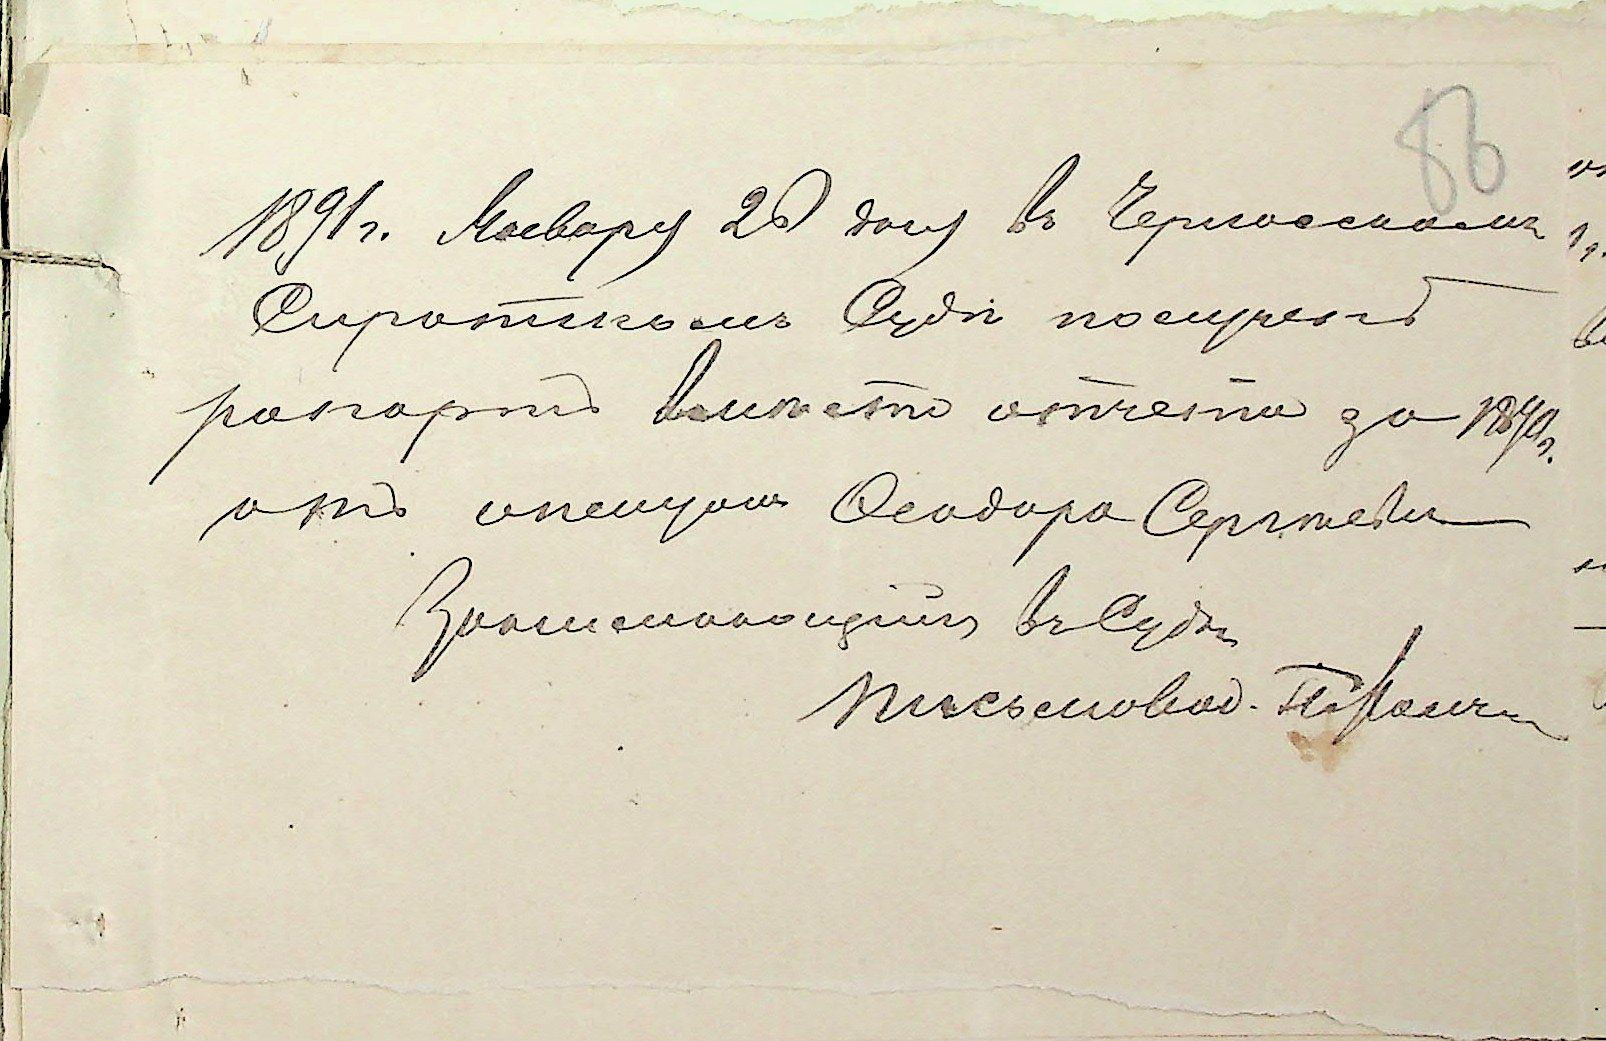 86
1891 г. Января 28 дня въ Черкасскомъ
Сиротскомъ Судѣ полученъ
рапортъ вмѣсто отчета за 1890 г.
отъ опекуна Ѳеодора Сергѣева
въ Судѣ
Письмовод.